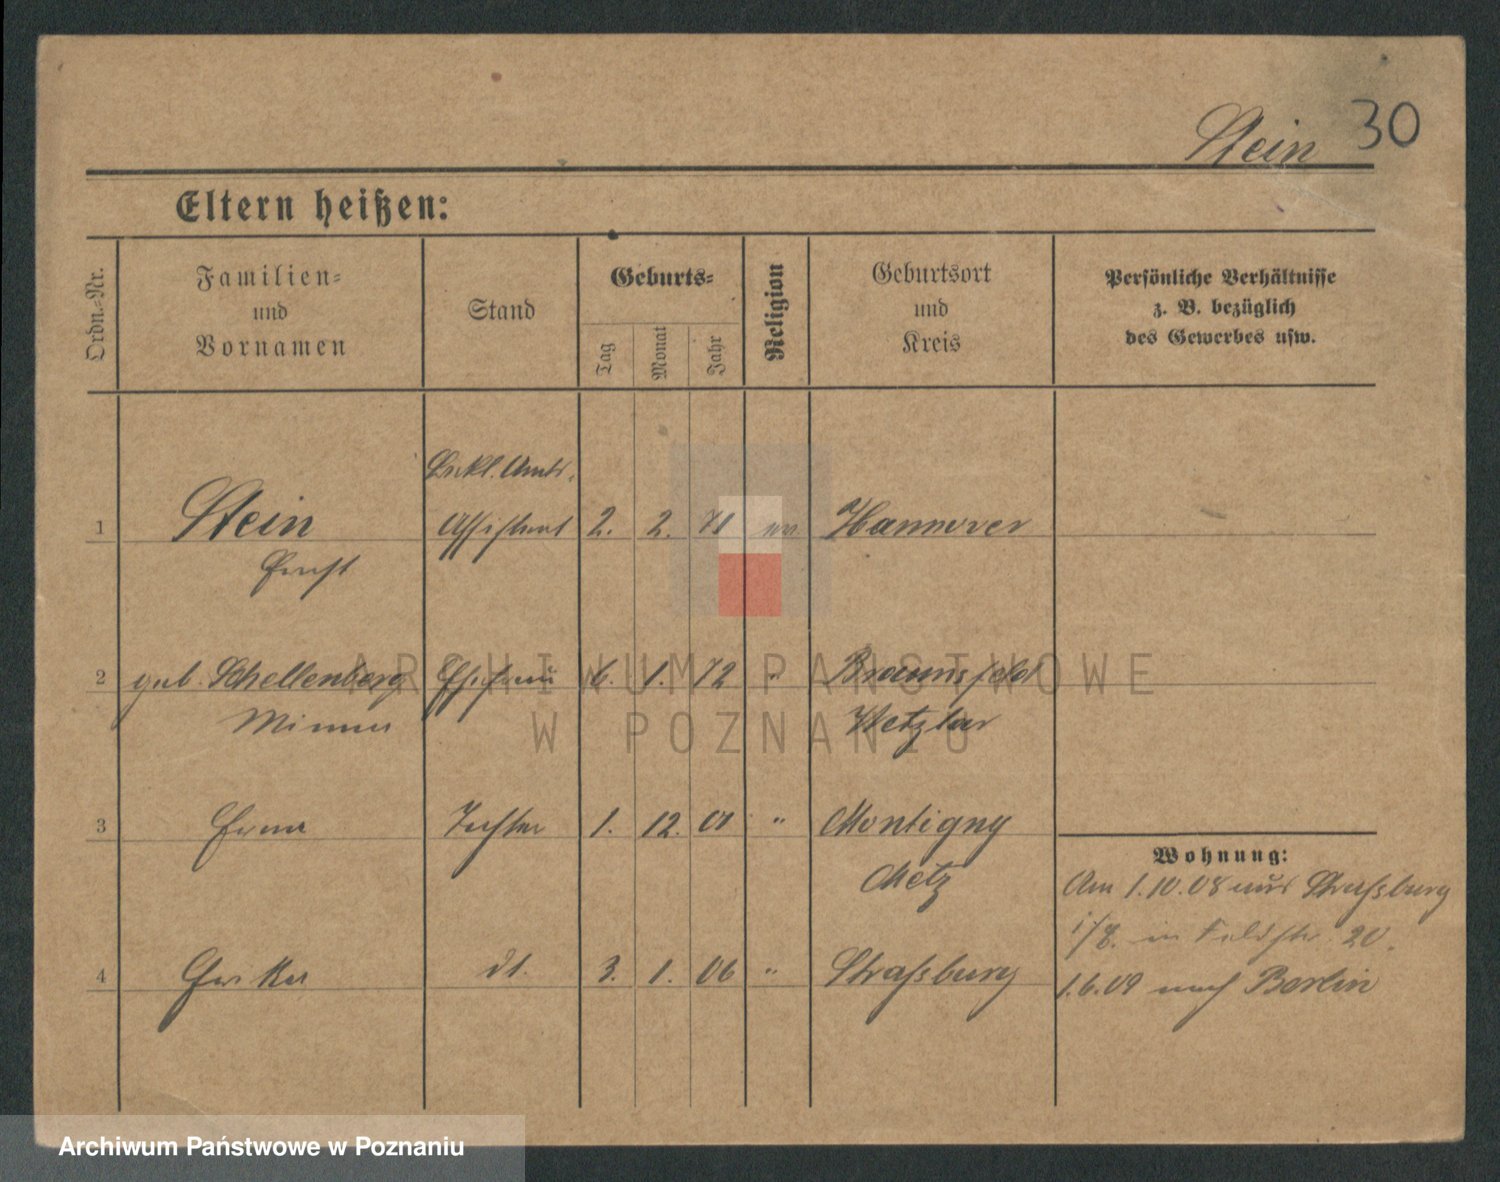 Stein 30
Eltern heißen:
Ordn.=Nr.
Familien=
und
Vornamen
Stand
Geburts=
Tag
Monat
Jahr
Religion
Geburtsort
und
Kreis
Persönliche Verhältnisse
z. B. bezüglich
des Gewerbes usw.
Amts.
1 Stein Assistent 2. 2. 71 ev. Hannover
Ernst
2 geb. Schellenberg Ehefrau 6. 1. 72 " Braunsfeld
Minna Wetzlar
3 Erna Tochter 1. 12. 01 " Montigny
Metz
4 Erika dt. 3. 1. 06 " Straßburg
Wohnung:
Am 1.10.08 aus Straßburg
i/E. in Feldstr. 20.
1.6.09 nach Berlin
ARCHIWUM PAŃSTWOWE
W POZNANIU
Archiwum Państwowe w Poznaniu